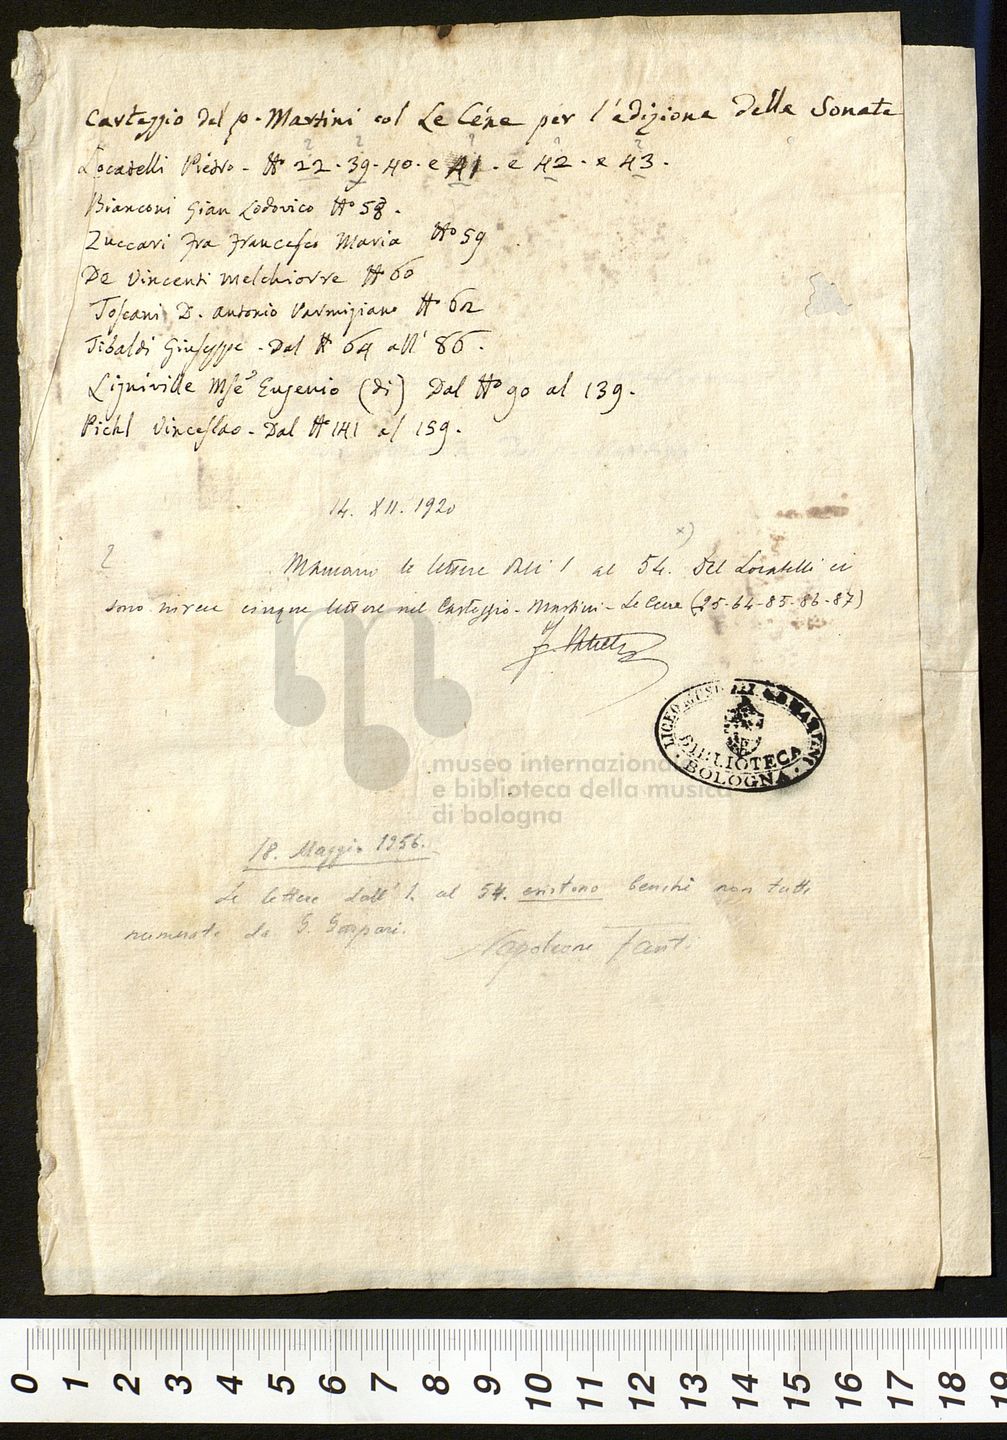 Carteggio del p. Martini col Le Céne per l'edizione delle Sonate
Locatelli Pietro - N.º 22 - 39 - 40 - e 41 - e 42 - e 43 -
Bianconi Gian Lodovico N.º 58 -
Zuccari Fra Francesco Maria N.º 59
De Vincenti Melchiorre N 60
Toscani D. Antonio Parmigiano N.º 62
Tibaldi Giuseppe - Dal N 64 all' 86 -
Ligniville Mse Eugenio (di) Dal N.º 90 al 139 -
Pichl Vinceslao - Dal N 141 al 159 -
14. XII. 1920
x)
? Mancano le lettere dall' 1 al 54. Del Locatelli ci
sono invece cinque lettere nel Carteggio - Martini - Le Cene (25-64-85-86-87)
LICEO MUSICALE G.B. MARTINI
BIBLIOTECA
BOLOGNA
museo internazionale
e biblioteca della musica
di bologna
18. Maggio 1956.
Le lettere dall' 1. al 54. esistono benchè non tutte
numerate da G. Gaspari.
Napoleone Fanti
0 1 2 3 4 5 6 7 8 9 10 11 12 13 14 15 16 17 18 19